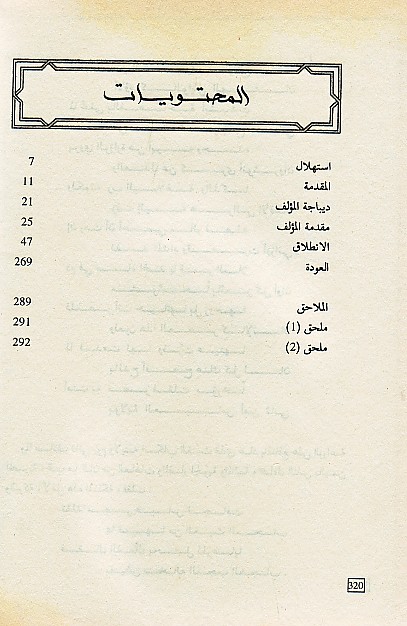 المحتويات
استهلال 7
المقدمة 11
ديباجة المؤلف 21
مقدمة المؤلف 25
الانطلاق 47
العودة 269
الملاحق 289
ملحق (1) 291
ملحق (2) 292
320